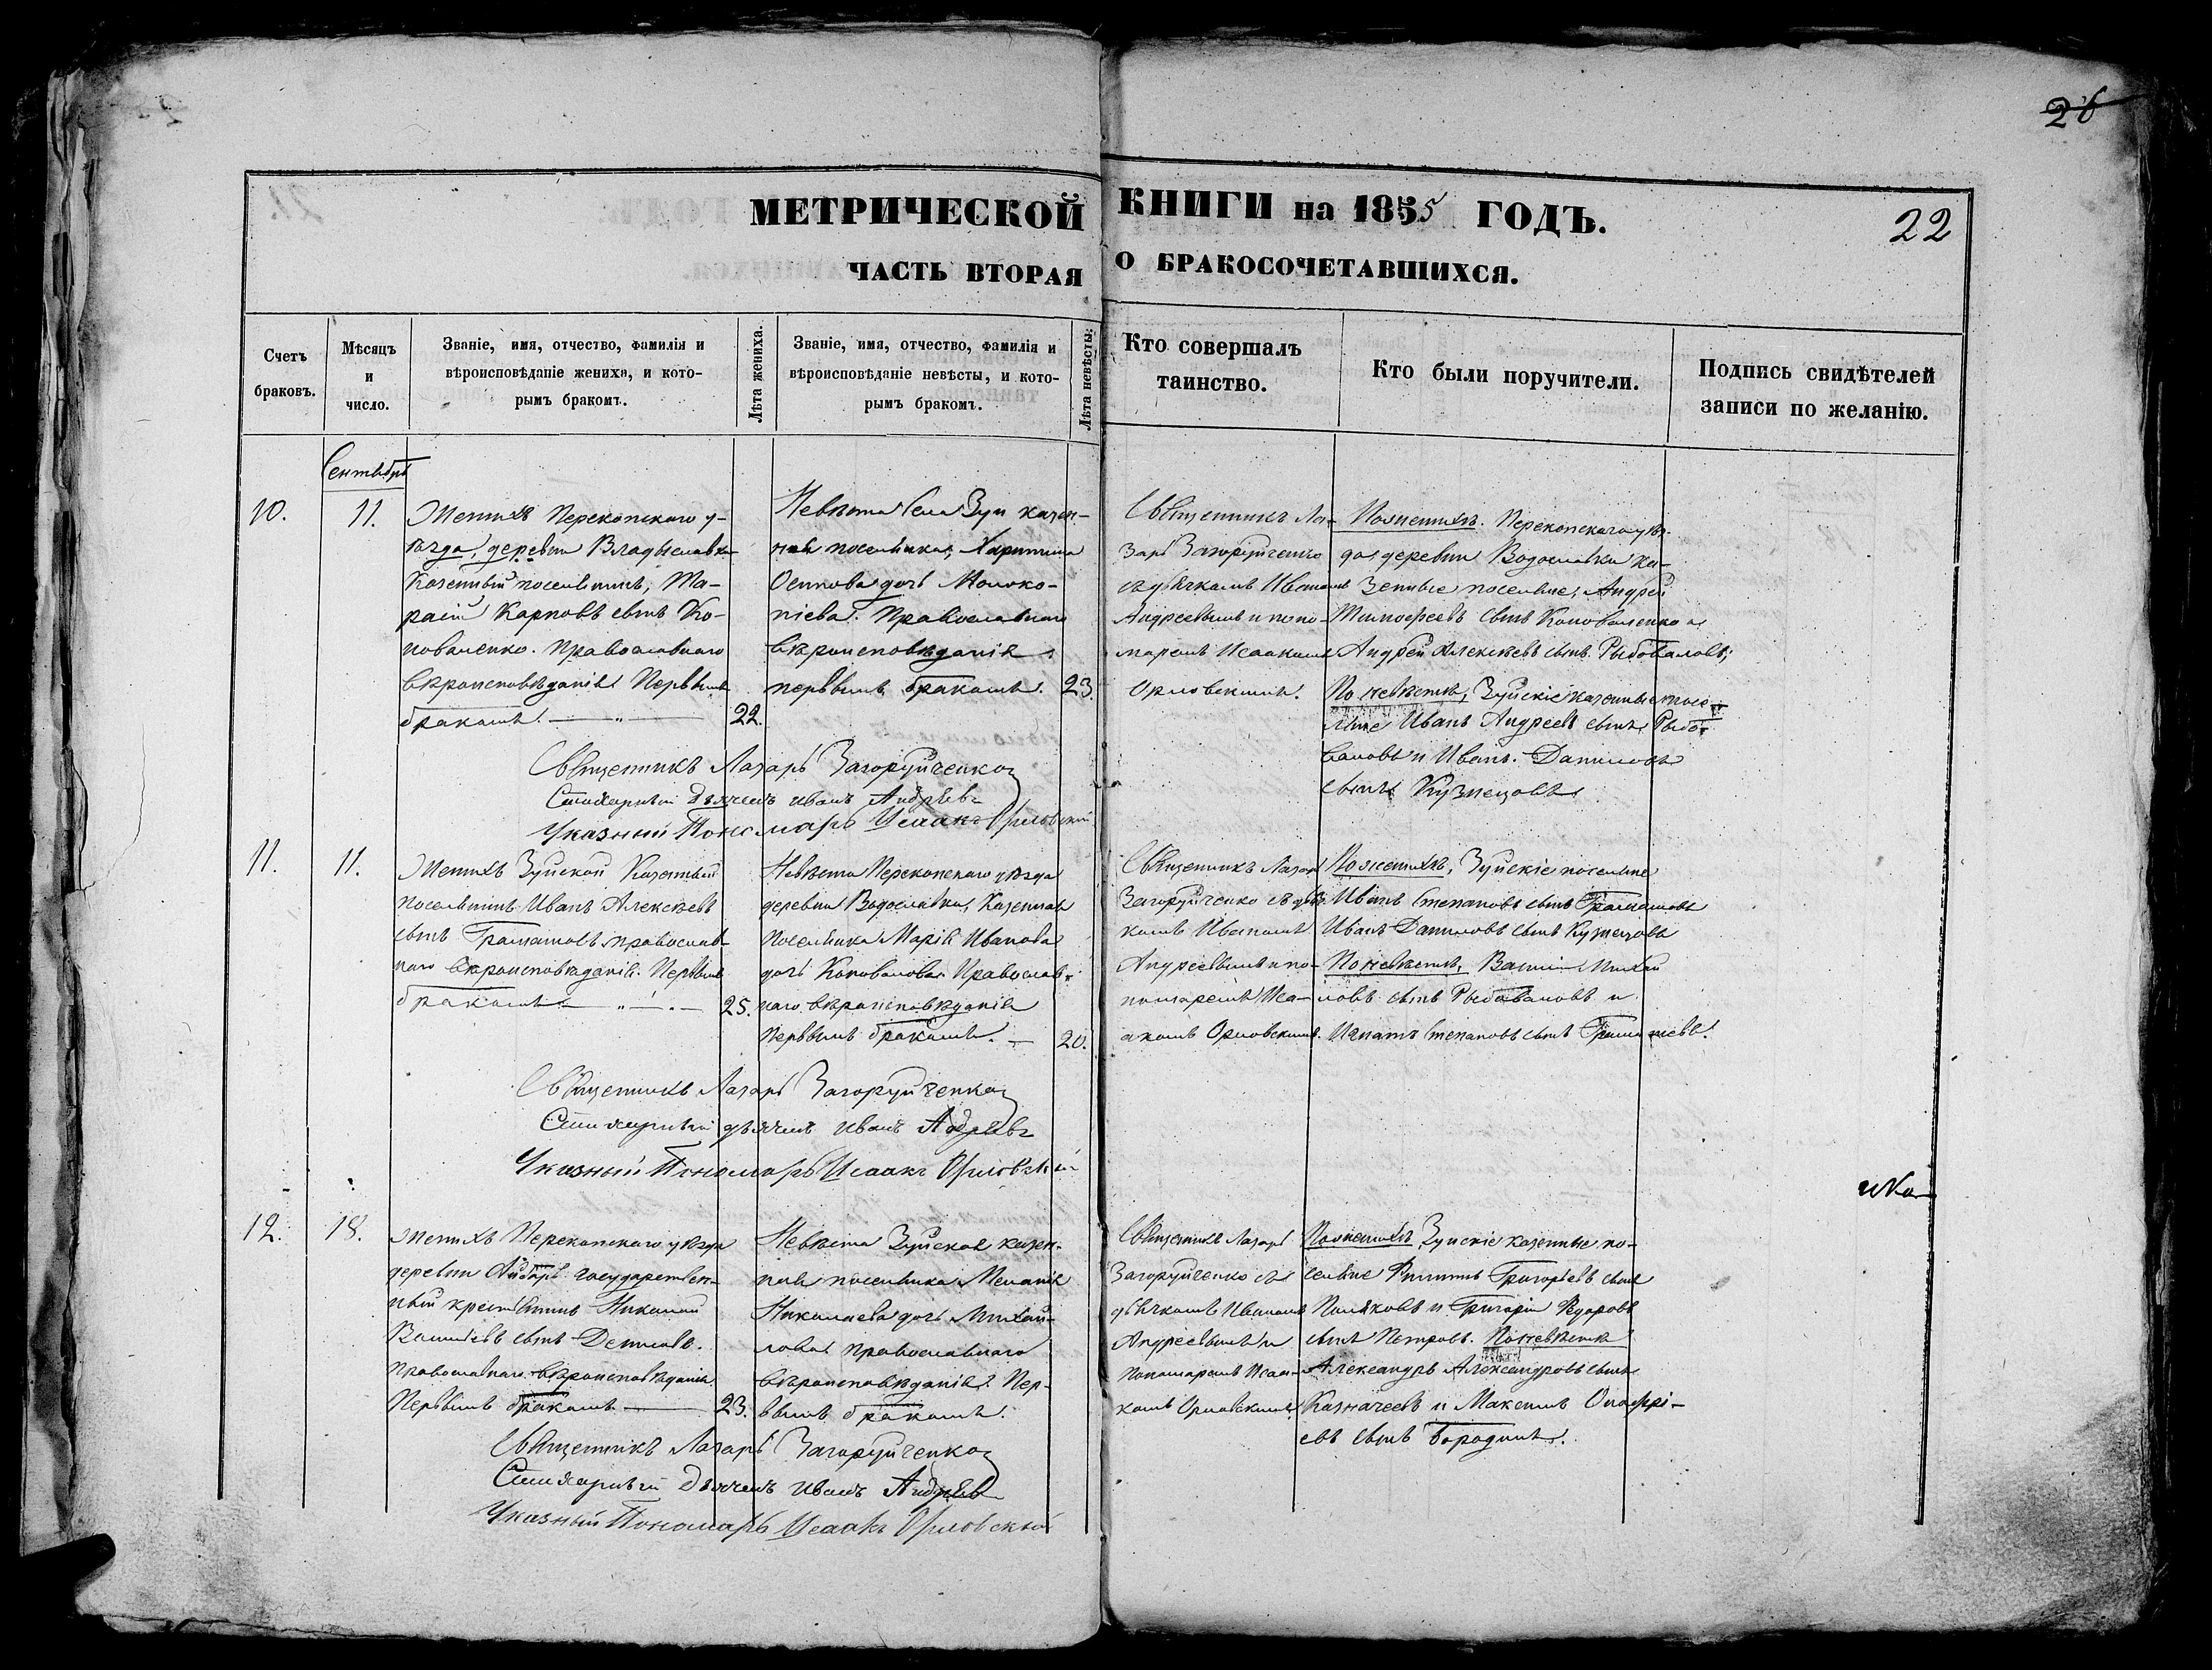 26
МЕТРИЧЕСКОЙ КНИГИ на 1855 ГОДЪ.
22
ЧАСТЬ ВТОРАЯ О БРАКОСОЧЕТАВШИХСЯ.
Счетъ браковъ.
Мѣсяцъ и число.
Званіе, имя, отчество, фамилія и
вѣроисповѣданіе жениха, и кото-
рымъ бракомъ.
Лѣта жениха.
Званіе, имя, отчество, фамилія и
вѣроисповѣданіе невѣсты, и кото-
рымъ бракомъ.
Лѣта невѣсты.
Кто совершалъ
таинство.
Кто были поручители.
Подпись свидѣтелей
записи по желанію.
Сентябрь
10.
11.
Женихъ Перекопскаго у-
ѣзда, деревни Владиславки
Казенный поселянинъ, Та-
расій Карповъ сынъ Ко-
новаленко. Православнаго
вѣроисповѣданія Первымъ
бракомъ.
22.
Невѣста села Зуи казен-
ная поселянка, Харитина
Осипова дочь
Православнаго
вѣроисповѣданія
первымъ бракомъ.
23.
Священникъ Ла-
зарь Загоруйченко
съ дьячкомъ Иваномъ
Андреевымъ и поно-
маремъ Исаакомъ
Орловскимъ.
По женихѣ. Перекопскаго уѣз-
да деревни Водославки ка-
зенные поселяне, Андрей
Тимофеевъ сынъ Коноваленко и
Андрей Алексѣевъ сынъ Рыбоваловъ;
По невѣстѣ, Зуйскіе казенные посе-
ляне Иванъ Андреевъ сынъ Рыбо-
валовъ и Иванъ Даниловъ
сынъ Кузнецовъ.
Священникъ Лазарь Загоруйченко
Стихарный Дьячекъ Иванъ Андрѣевъ
Указный Пономарь Исаакъ Орловскій
11.
11.
Женихъ Зуйской Казенный
поселянинъ Иванъ Алексѣевъ
сынъ православ-
наго вѣроисповѣданія. Первымъ
бракомъ
25.
Невѣста Перекопскаго уѣзда
деревни Водославки, Казенная
поселянка Марія Иванова
дочь Коновалова Православ-
наго вѣроисповѣданія
Первымъ бракомъ.
20.
Священникъ Лазарь
Загоруйченко съ дьяч-
комъ Иваномъ
Андреевымъ и по-
номаремъ Иса-
акомъ Орловскимъ.
По женихѣ, Зуйскіе поселяне
Иванъ Степановъ сынъ
Иванъ Даниловъ сынъ Кузнецовъ
По невѣстѣ, Василій Михай
ловъ сынъ Рыбоваловъ и
Игнатъ Степановъ сынъ
Священникъ Лазарь Загоруйченко
Стихарный дьячекъ Иванъ Андрѣевъ
Указный Пономарь Исаакъ Орловскій
12.
18.
Женихъ Перекопскаго уѣзда
деревни Айбаръ государствен-
ный крестьянинъ Николай
Васильевъ сынъ
Православнаго вѣроисповѣданія.
Первымъ бракомъ
23.
Невѣста Зуйская казен-
ная поселянка Меланія
Николаева дочь Михай-
лова православнаго
вѣроисповѣданія. Пер-
вымъ бракомъ.
Священникъ Лазарь
Загоруйченко съ
дьячкомъ Иваномъ
Андреевымъ и
пономаремъ Исаа-
комъ Орловскимъ
По женихѣ Зуйскіе казенные по-
селяне Филиппъ Григорьевъ сынъ
Поляковъ и Григорій Федоровъ
сынъ Петровъ. По невѣстѣ
Александръ Александровъ сынъ
Казначеевъ и Максимъ Онофрі-
евъ сынъ Бородинъ.
Священникъ Лазарь Загоруйченко
Стихарный Дьячекъ Иванъ Андрѣевъ
Указный Пономарь Исаакъ Орловскій